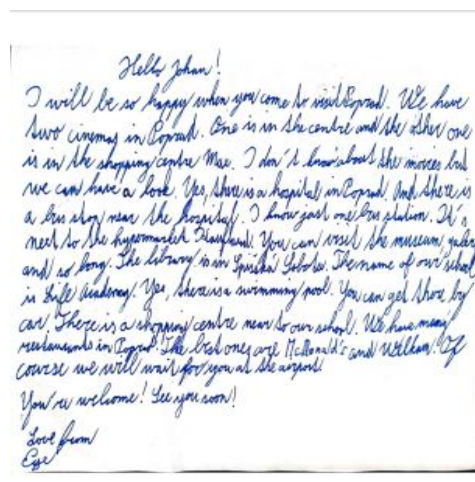 Hello Johan!
I will be so happy when you come to visit Poprad. We have
two cinemas in Poprad. One is in the centre and the other one
is in the shopping centre Max. I don't know about the movies but
we can have a look. Yes, there is a hospital in Poprad. And there is
a bus stop near the hospital. I know just one bus station. It's
next to the hypermarket. You can visit the museum,
and so long. The library is in Spišská Sobota. The name of our school
is Life Academy. Yes, there is a swimming pool. You can get there by
car. There is a shopping centre near to our school. We have many
restaurants in Poprad. The best ones are McDonald's and William. Of
course we will wait for you at the airport!
You're welcome! See you soon!
Love from